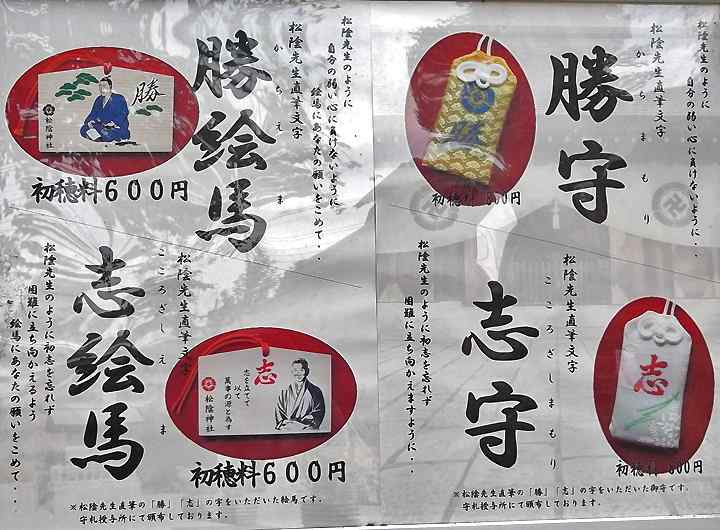 松陰先生のように
自分の弱い心に負けないように
絵馬にあなたの願いをこめて・・
松陰先生直筆文字
かちえま
勝絵馬
勝
松陰神社
初穂料600円
松陰先生直筆文字
こころざしえま
志絵馬
松陰先生のように初志を忘れず
困難に立ち向かえるよう
絵馬にあなたの願いをこめて・・・
志
志を立てて
以て
萬事の源と為す
松陰神社
初穂料600円
※松陰先生直筆の「勝」「志」の字をいただいた絵馬です。
守札授与所にて頒布しております。
松陰先生のように
自分の弱い心に負けないように・・
松陰先生直筆文字
かちまもり
勝守
初穂料 800円
松陰先生直筆文字
こころざしまもり
志守
松陰先生のように初志を忘れず
困難に立ち向かえますように・・
志
初穂料 800円
※松陰先生直筆の「勝」「志」の字をいただいた御守です。
守札授与所にて頒布しております。